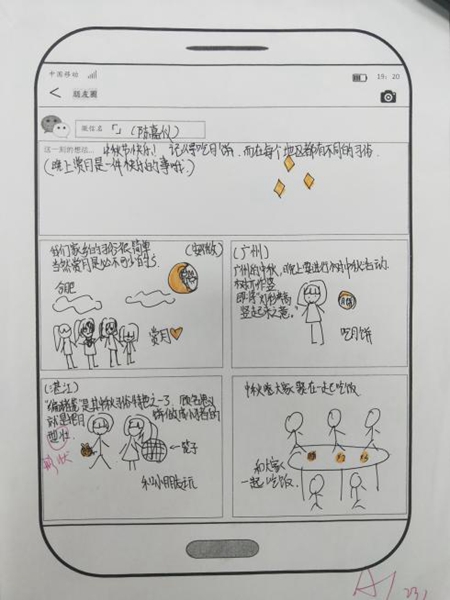 中国移动
19:20
朋友圈
微信名「」(陈嘉仪)
这一刻的想法... 中秋节快乐! 记得吃月饼,而在每个地区都有不同的习俗
(晚上赏月是一件快乐的事哦.)
我们家乡的习俗很简单 (安徽)
当然赏月是必不可少的
合肥
赏月
(广州)
广州的中秋,晚上要进行树中秋活动.
树作竖
竖起来之意."
吃月饼
(湛江)
是其中秋习俗特色之一
就是把月饼做成小猪的
型壮.
形状
←篮子
和小朋友玩
中秋晚大家要在一起吃饭
和大家
一起吃饭.
A